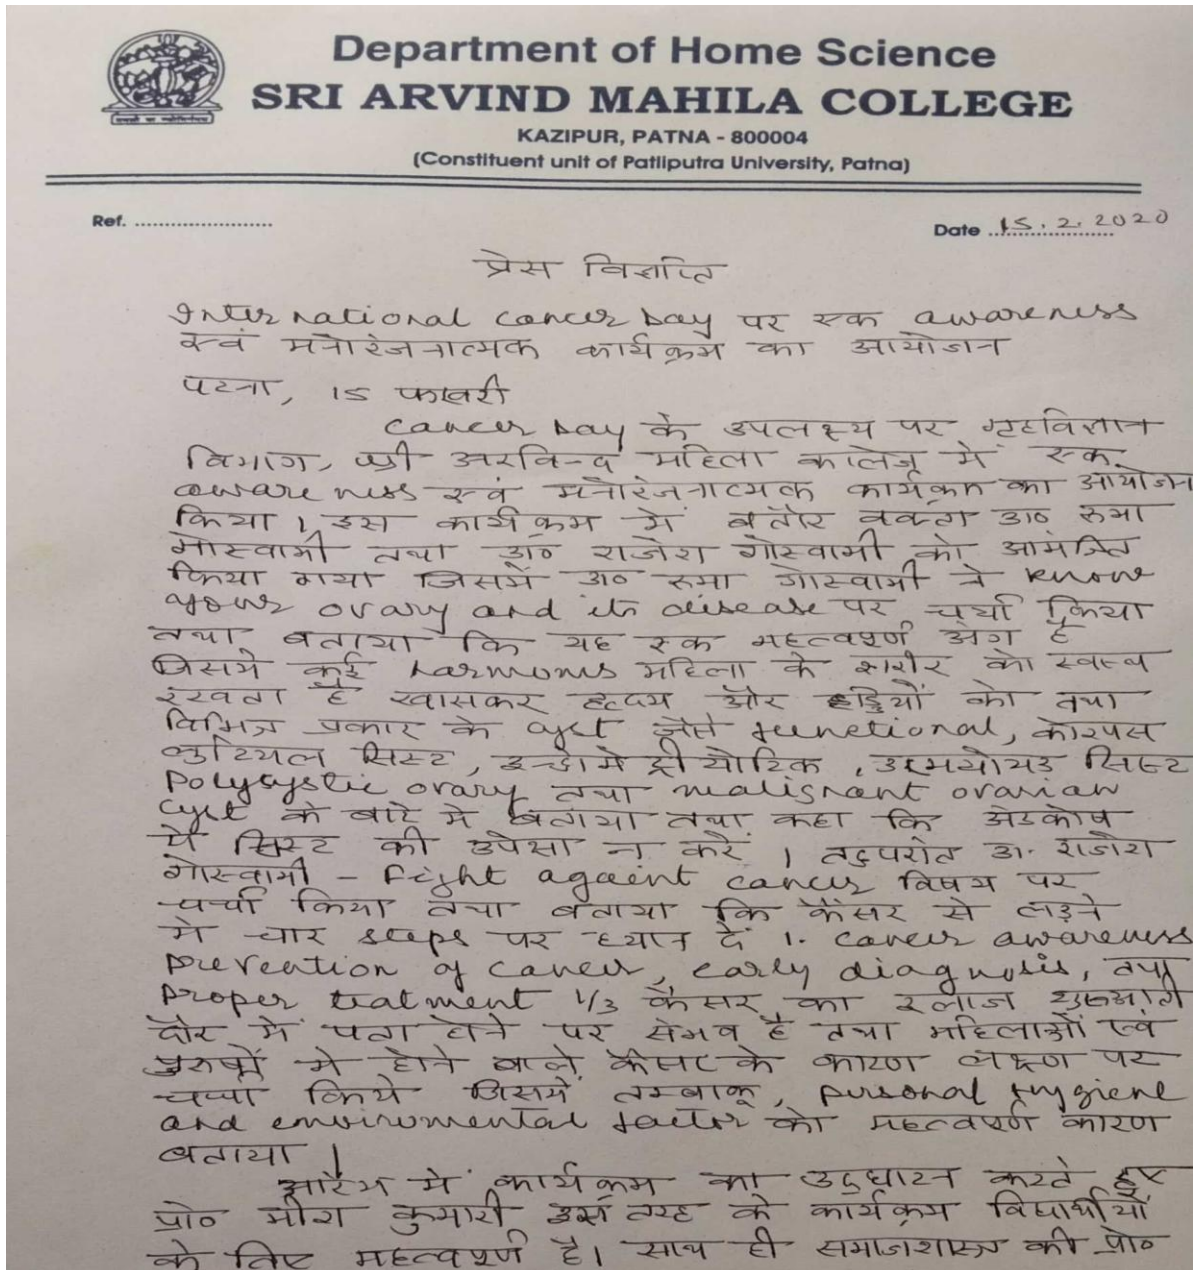 Department of Home Science
SRI ARVIND MAHILA COLLEGE
KAZIPUR, PATNA - 800004
(Constituent unit of Patliputra University, Patna)
Ref. ........................
Date 15.2.2020
प्रेस विज्ञप्ति
International cancer Day पर एक awareness
एवं मनोरंजनात्मक कार्यक्रम का आयोजन
पटना, 15 फरवरी
Cancer Day के उपलक्ष्य पर गृहविज्ञान
विभाग, श्री अरविन्द महिला कालेज में एक
awareness एवं मनोरंजनात्मक कार्यक्रम का आयोजन
किया । इस कार्यक्रम में बतौर वक्ता डा० रूमा
गोस्वामी तथा डा० राजेश गोस्वामी को आमंत्रित
किया गया जिसमें डा० रूमा गोस्वामी ने know
your ovary and its disease पर चर्चा किया
तथा बताया कि यह एक महत्वपूर्ण अंग है
जिसमे कई harmons महिला के शरीर को स्वस्थ
रखता है खासकर हृदय और हड्डियों को तथा
विभिन्न प्रकार के cyst जैसे functional, कोरपस
लुटियल सिस्ट, इन्डोमेट्रीयोटिक, डरमयोयड सिस्ट
Polycystic ovary तथा malignant ovarian
cyst के बारे मे बताया तथा कहा कि अंडकोष
मे सिस्ट की उपेक्षा न करें । तदुपरांत डा. राजेश
गोस्वामी - Fight againt cancer विषय पर
चर्चा किया तथा बताया कि कैंसर से लड़ने
मे चार steps पर ध्यान दें 1. cancer awareness
prevention of cancer, early diagnosis, तथा
proper treatment 1/3 कैंसर का इलाज शुरूआती
दौर में पता होने पर संभव है तथा महिलाओं एवं
पुरुषों मे होने वाले कैंसर के कारण लक्षण पर
चर्चा किये जिसमें तम्बाकू, personal hygiene
and enviromental factor को महत्वपूर्ण कारण
बताया ।
आरंभ में कार्यक्रम का उद्घाटन करते हुए
प्रो० मीरा कुमारी इस तरह के कार्यक्रम विद्यार्थीयों
के लिए महत्वपूर्ण है। साथ ही समाजशास्त्र की प्रो०